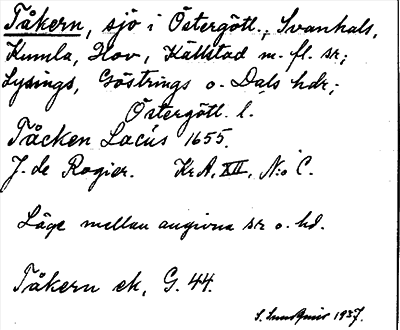 Tåkern, sjö i Östergötl., Svanhals,
Kumla, Hov, Källstad m. fl. sr;
Lysings, Göstrings o. Dals hdr;
Östergötl. l.
Tåcken Lacus 1655.
J. de Rogier. Kr A, XII, N:o C.
Läge mellan angivna sr o. hd.
Tåkern ek, G. 44.
S. Lundqvist 1937.